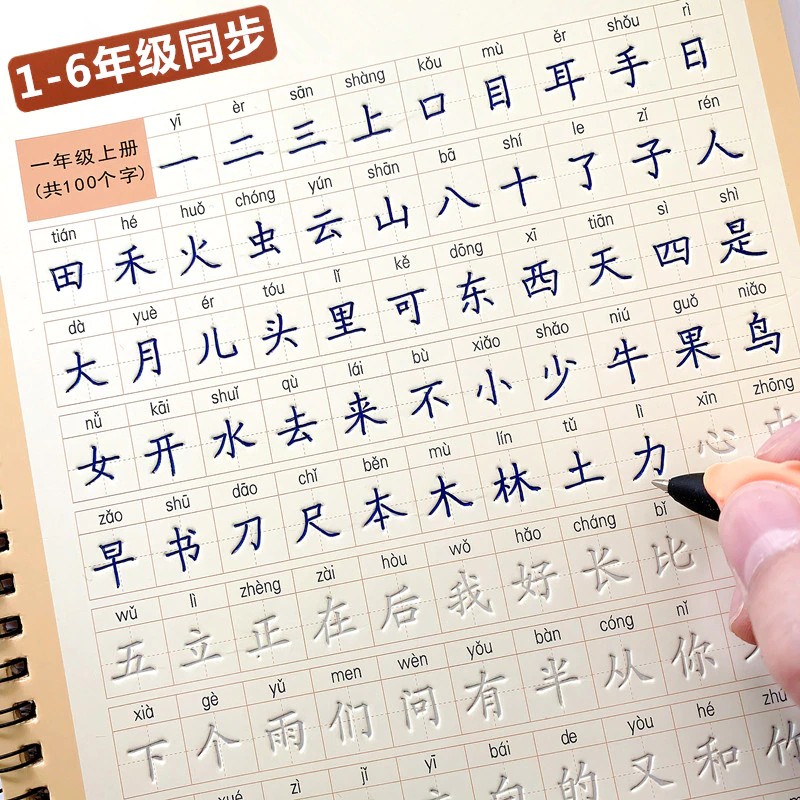 1-6年级同步
一年级上册
(共100个字)
yī èr sān shàng kǒu mù ěr shǒu rì
一 二 三 上 口 目 耳 手 日
tián hé huǒ chóng yún shān bā shí le zǐ rén
田 禾 火 虫 云 山 八 十 了 子 人
dà yuè ér tóu lǐ kě dōng xī tiān sì shì
大 月 儿 头 里 可 东 西 天 四 是
nǚ kāi shuǐ qù lái bù xiǎo shǎo niú guǒ niǎo
女 开 水 去 来 不 小 少 牛 果 鸟
zǎo shū dāo chǐ běn mù lín tǔ lì xīn zhōng
早 书 刀 尺 本 木 林 土 力 心 中
wǔ lì zhèng zài hòu wǒ hǎo cháng bǐ
五 立 正 在 后 我 好 长 比
xià gè yǔ men wèn yǒu bàn cóng nǐ
下 个 雨 们 问 有 半 从 你
xué zì jǐ yī bái de yòu hé zhú
白 的 又 和 竹